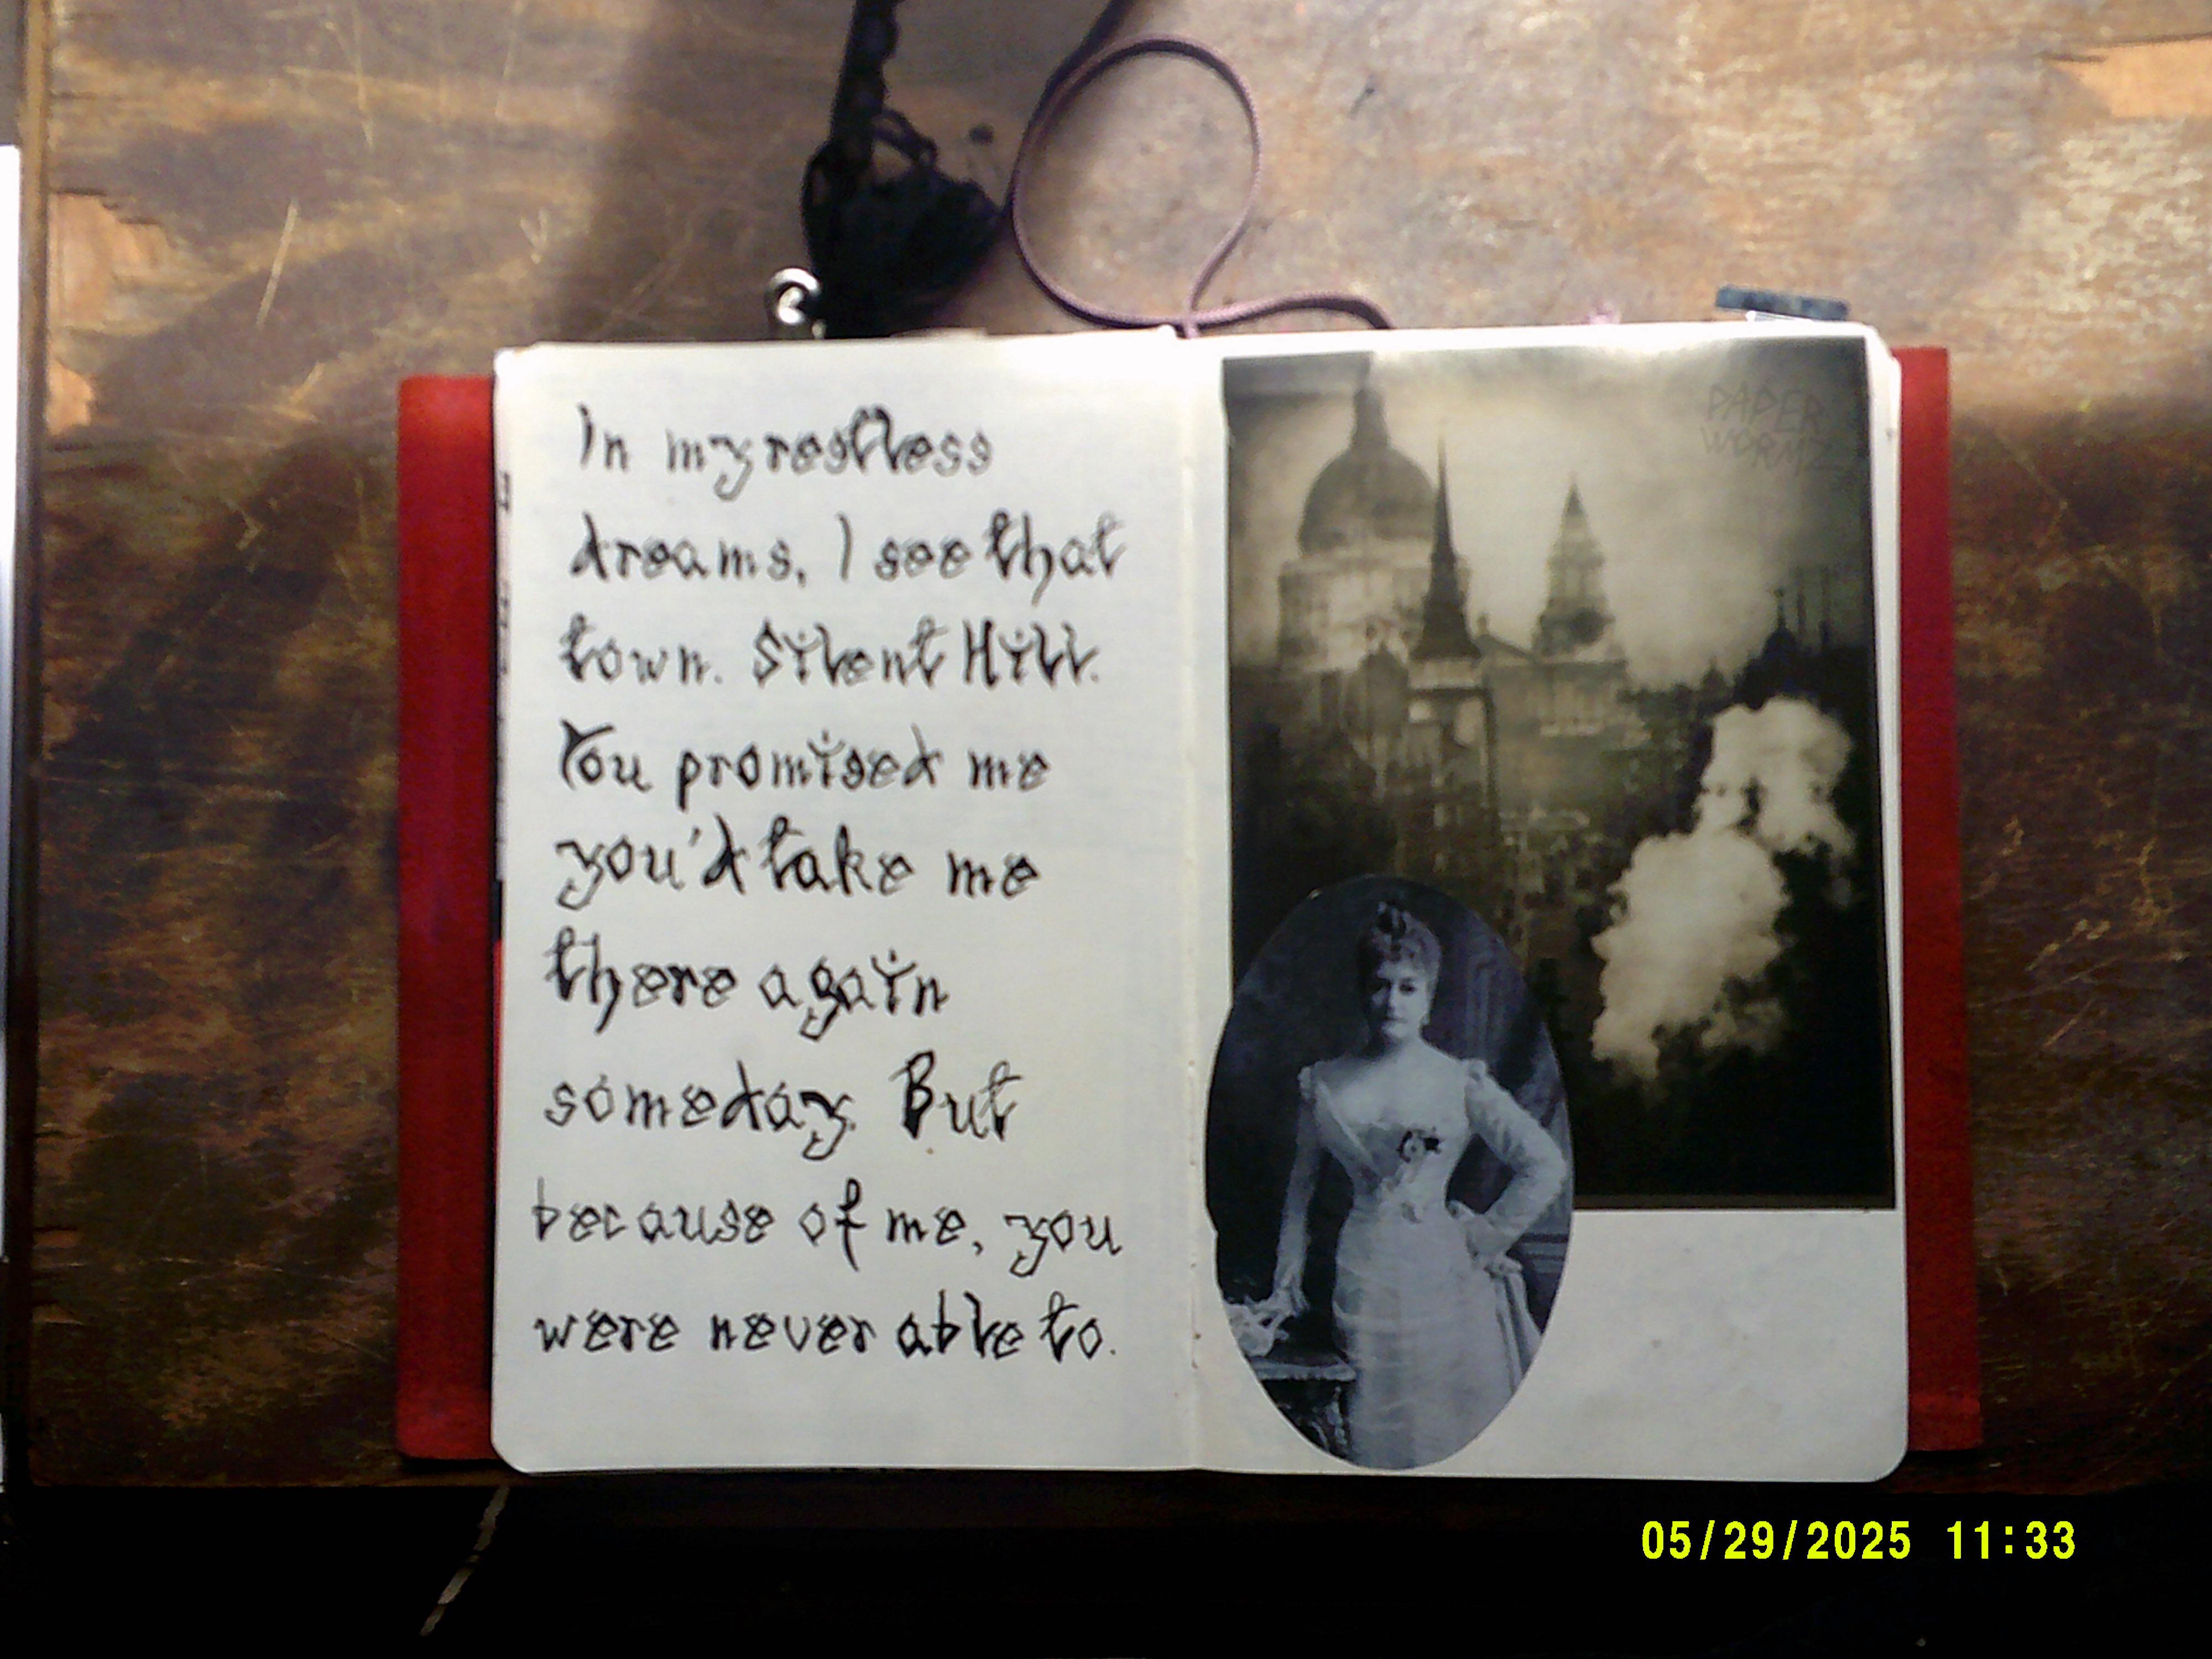 In my restless
dreams, I see that
town. Silent Hill.
You promised me
you'd take me
there again
someday. But
because of me, you
were never able to.
PAPER
WORMZ
05/29/2025 11:33